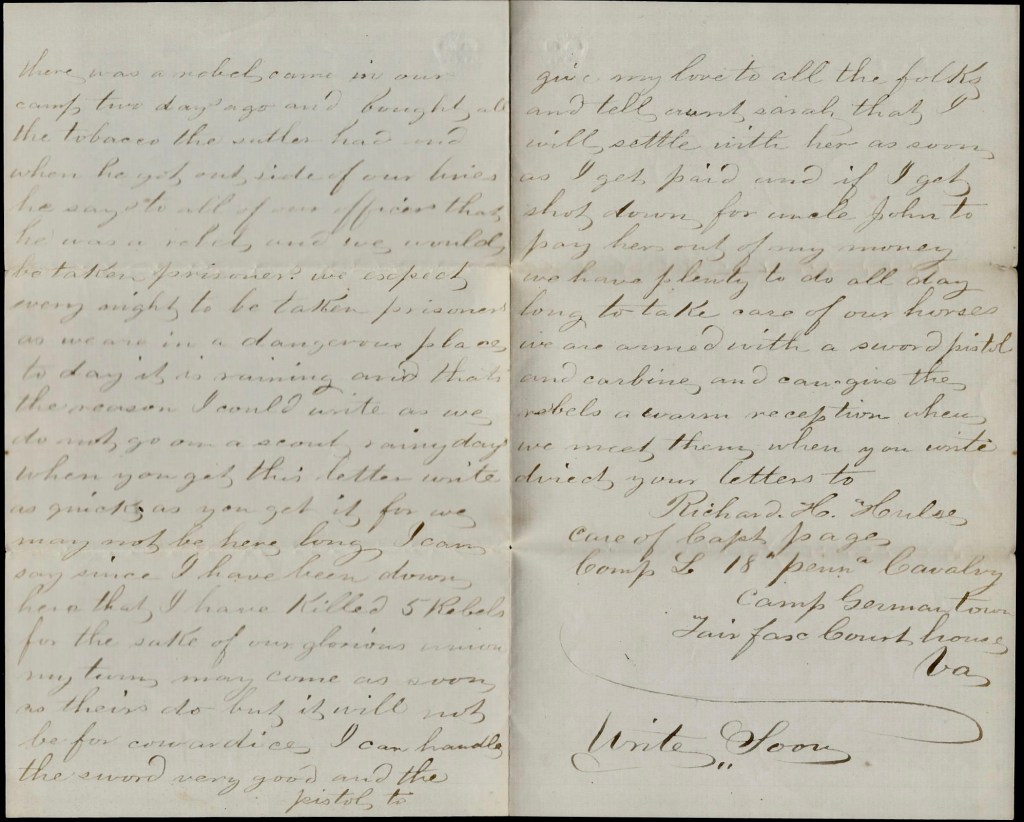 there was a rebel came in our
camp two day's ago and bought all
the tobacco the sutler had and
when he got out side of our lines
he says to all of our officers that
he was a rebel and we would
be taken prisoners we expect
every night to be taken prisoners
as we are in a dangerous place
to day it is raining and that's
the reason I could write as we
do not go on a scout rainy days
when you get this letter write
as quick as you get it for we
may not be here long I can
say since I have been down
here that I have Killed 5 Rebels
for the sake of our glorious union
my turn may come as soon
as theirs do but it will not
be for cowardice I can handle
the sword very good and the
pistol to
give my love to all the folks
and tell aunt sarah that I
will settle with her as soon
as I get paid and if I get
shot down for uncle John to
pay her out of my money
we have plenty to do all day
long to take care of our horses
we are armed with a sword pistol
and carbine and can give the
rebels a warm reception when
we meet them when you write
direct your letters to
Richard. H. Hulse
care of Capt page
Comp L 18" penn" Cavalry
Camp Germantown
Fairfax Court house
Va
Write Soon